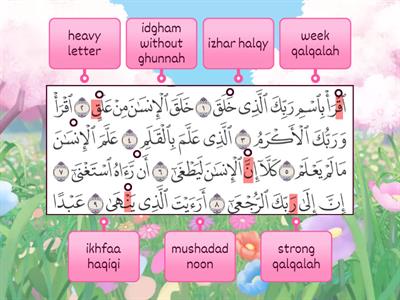 heavy letter
idgham without ghunnah
izhar halqy
week qalqalah
ٱقۡرَأۡ بِٱسۡمِ رَبِّكَ ٱلَّذِي خَلَقَ ١ خَلَقَ ٱلۡإِنسَٰنَ مِنۡ عَلَقٍ ٢ ٱقۡرَأۡ
وَرَبُّكَ ٱلۡأَكۡرَمُ ٣ ٱلَّذِي عَلَّمَ بِٱلۡقَلَمِ ٤ عَلَّمَ ٱلۡإِنسَٰنَ
مَا لَمۡ يَعۡلَمۡ ٥ كَلَّآ إِنَّ ٱلۡإِنسَٰنَ لَيَطۡغَىٰٓ ٦ أَن رَّءَاهُ ٱسۡتَغۡنَىٰٓ ٧
إِنَّ إِلَىٰ رَبِّكَ ٱلرُّجۡعَىٰٓ ٨ أَرَءَيۡتَ ٱلَّذِي يَنۡهَىٰ ٩ عَبۡدًا
ikhfaa haqiqi
mushadad noon
strong qalqalah